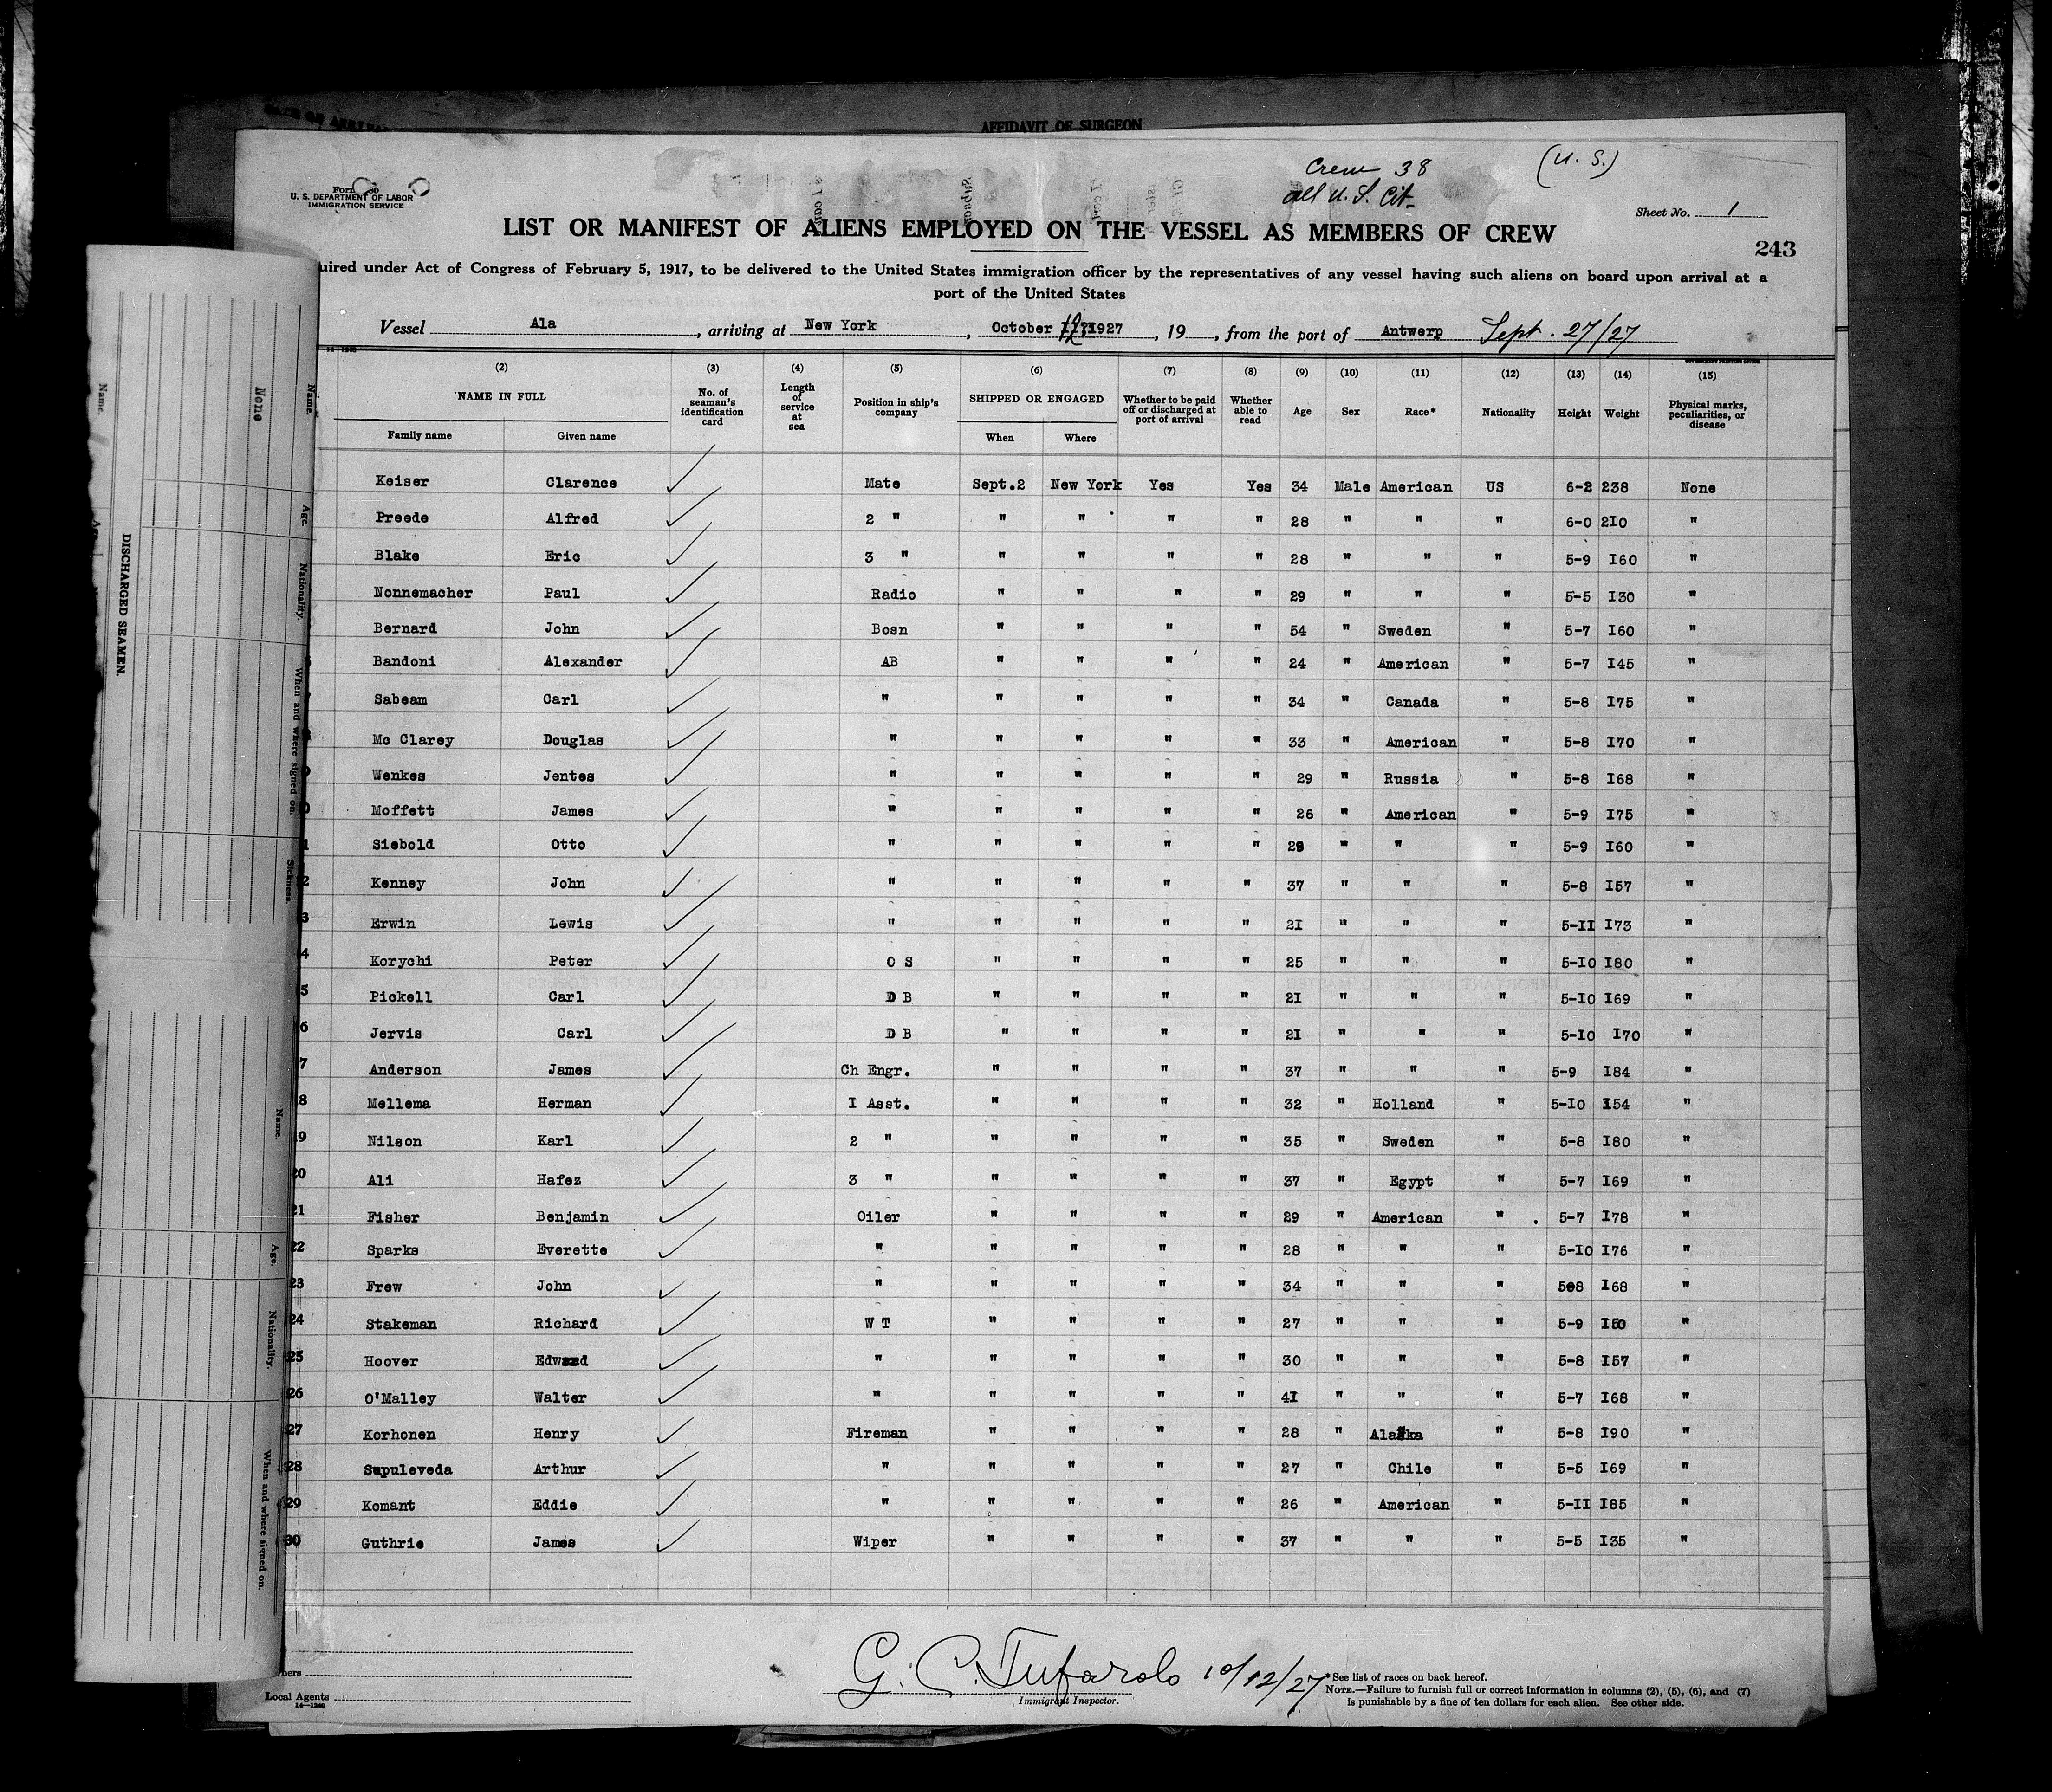 AFFIDAVIT OF SURGEON
Crew 38
all U. S. Cit.
(U. S.)
U. S. DEPARTMENT OF LABOR
IMMIGRATION SERVICE
Sheet No. 1
LIST OR MANIFEST OF ALIENS EMPLOYED ON THE VESSEL AS MEMBERS OF CREW
243
uired under Act of Congress of February 5, 1917, to be delivered to the United States immigration officer by the representatives of any vessel having such aliens on board upon arrival at a
port of the United States
Vessel Ala, arriving at New York, October 12 1927, 19, from the port of Antwerp Sept. 27/27
14-1240
(2) (3) (4) (5) (6) (7) (8) (9) (10) (11) (12) (13) (14) (15)
NAME IN FULL No. of seaman's identification card Length of service at sea Position in ship's company SHIPPED OR ENGAGED Whether to be paid off or discharged at port of arrival Whether able to read Age Sex Race* Nationality Height Weight Physical marks, peculiarities, or disease
Family name Given name When Where
Keiser Clarence Mate Sept.2 New York Yes Yes 34 Male American US 6-2 238 None
Preede Alfred 2 " " " " " 28 " " " 6-0 2I0 "
Blake Eric 3 " " " " " 28 " " " 5-9 I60 "
Nonnemacher Paul Radio " " " " 29 " " " 5-5 I30 "
Bernard John Bosn " " " " 54 " Sweden " 5-7 I60 "
Bandoni Alexander AB " " " " 24 " American " 5-7 I45 "
Sabeam Carl " " " " " 34 " Canada " 5-8 I75 "
Mc Clarey Douglas " " " " " 33 " American " 5-8 I70 "
Wenkes Jentes " " " " " 29 " Russia " 5-8 I68 "
Moffett James " " " " " 26 " American " 5-9 I75 "
Siebold Otto " " " " " " " " 5-9 I60 "
2 Kenney John " " " " " 37 " " " 5-8 I57 "
3 Erwin Lewis " " " " " 2I " " " 5-II I73 "
4 Korychi Peter O S " " " " 25 " " " 5-I0 I80 "
5 Pickell Carl D B " " " " 2I " " " 5-I0 I69 "
6 Jervis Carl D B " " " " 2I " " " 5-I0 I70 "
7 Anderson James Ch Engr. " " " " 37 " " " 5-9 I84 "
8 Mellema Herman I Asst. " " " " 32 " Holland " 5-I0 I54 "
19 Nilson Karl 2 " " " " " 35 " Sweden " 5-8 I80 "
20 Ali Hafez 3 " " " " " 37 " Egypt " 5-7 I69 "
21 Fisher Benjamin Oiler " " " " 29 " American " 5-7 I78 "
22 Sparks Everette " " " " " 28 " " " 5-I0 I76 "
23 Frew John " " " " " 34 " " " 5-8 I68 "
24 Stakeman Richard W T " " " " 27 " " " 5-9 I50 "
25 Hoover Edward " " " " " 30 " " " 5-8 I57 "
26 O'Malley Walter " " " " " 4I " " " 5-7 I68 "
27 Korhonen Henry Fireman " " " " 28 " Alaska " 5-8 I90 "
28 Sepuleveda Arthur " " " " " 27 " Chile " 5-5 I69 "
29 Komant Eddie " " " " " 26 " American " 5-II I85 "
30 Guthrie James Wiper " " " " 37 " " " 5-5 I35 "
G. C. Tufarolo 10/12/27
Immigrant Inspector.
Local Agents
14-1240
*See list of races on back hereof.
NOTE.—Failure to furnish full or correct information in columns (2), (5), (6), and (7)
is punishable by a fine of ten dollars for each alien. See other side.
DISCHARGED SEAMEN.
Name.
None
Name.
Age.
Nationality.
When and where signed on.
Sickness.
Name.
Age.
Nationality.
When and where signed on.